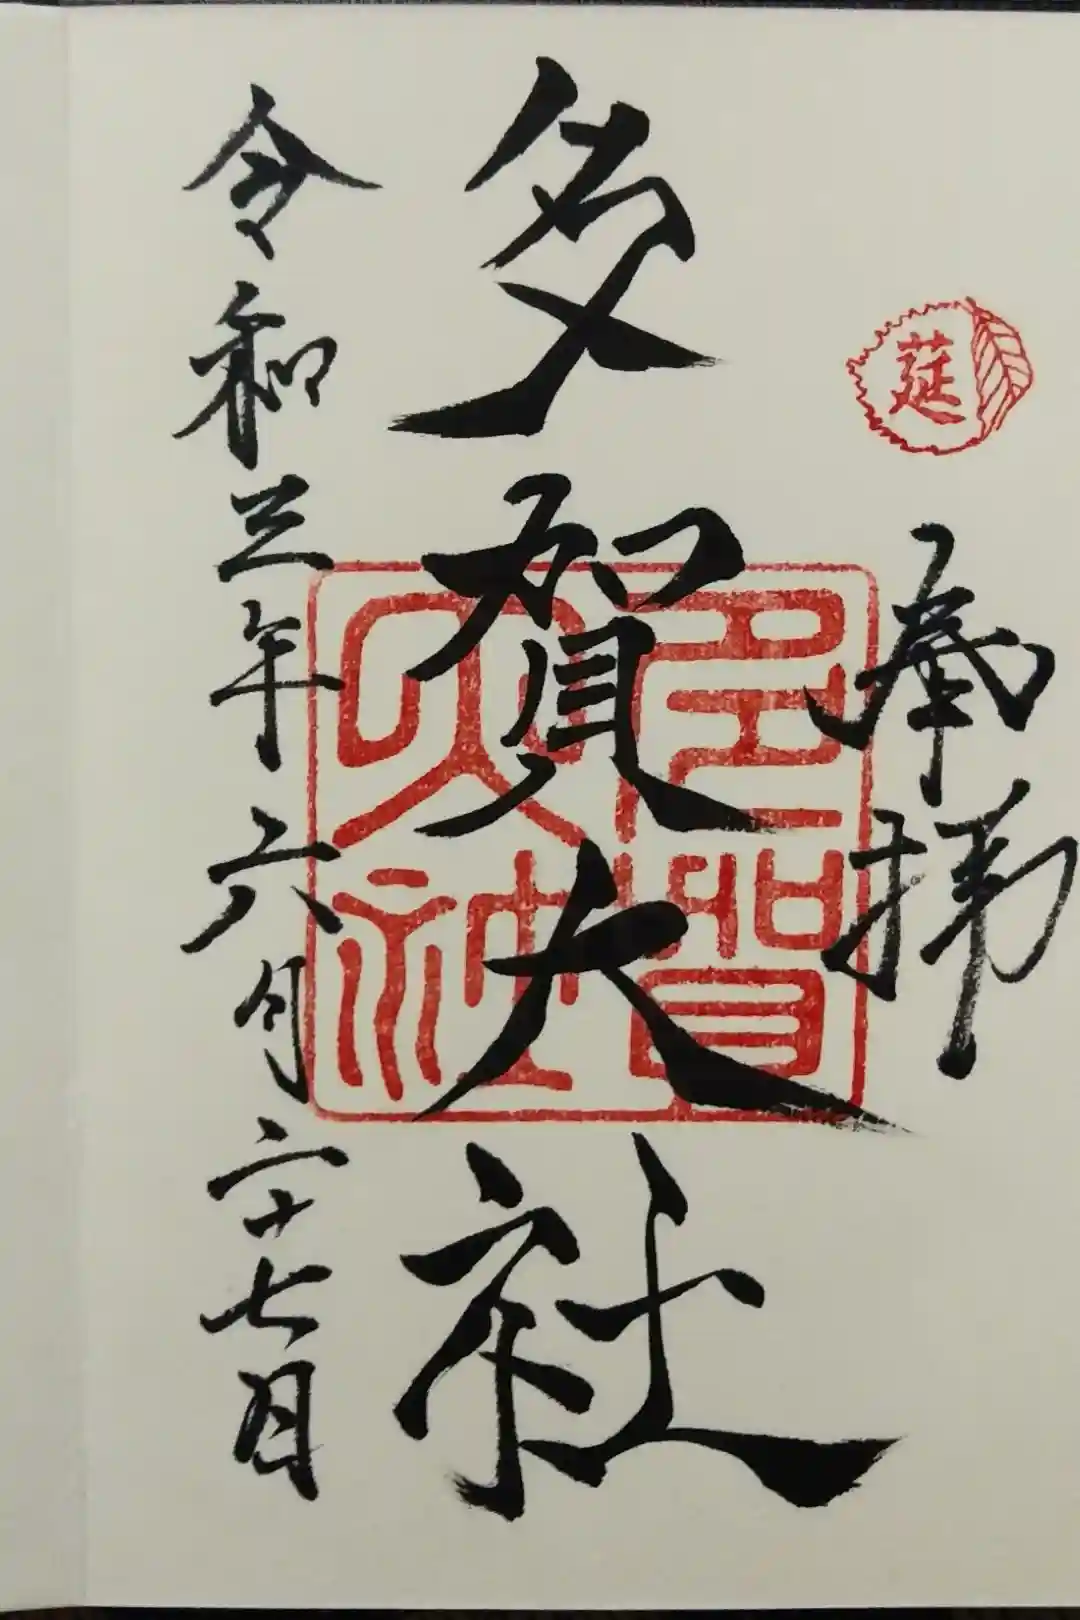 莚
奉拝
多賀大社
多賀大社
令和三年六月二十七日